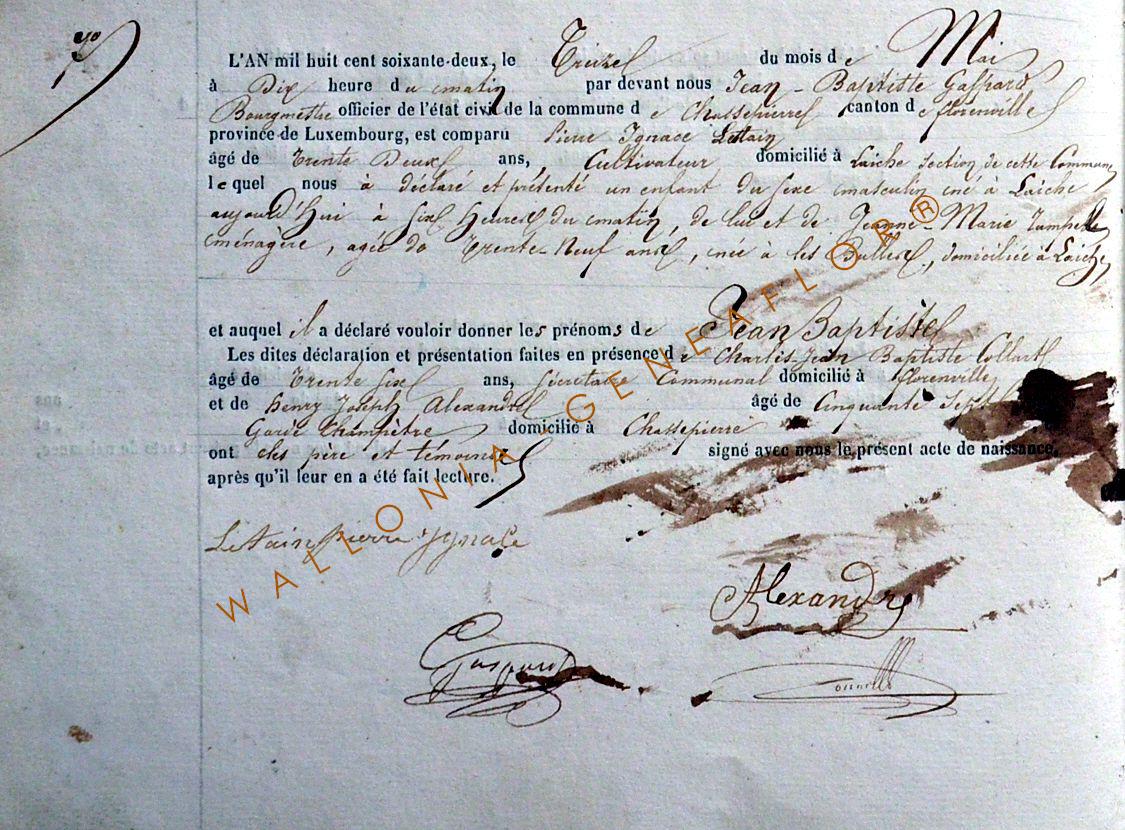 7o
L'AN mil huit cent soixante-deux, le Treize du mois de Mai
à Dix heure du matin par devant nous Jean-Baptiste Gaspard
Bourgmestre officier de l'état civil de la commune de Chassepierre canton de florenville
province de Luxembourg, est comparu Pierre Ignace Letain
âgé de Trente Deux ans, Cultivateur domicilié à Laiche section de cette Commune
lequel nous à déclaré et présenté un enfant du sexe masculin né à Laiche
aujourd'Hui à six Heures du matin, de lui et de Jeanne-Marie
ménagère, agée de Trente-Neuf ans, née à les Bulles, domiciliée à Laiche
et auquel il a déclaré vouloir donner les prénoms de Jean Baptiste
Les dites déclaration et présentation faites en présence de Charles-Jean Baptiste Collart
âgé de Trente six ans, secretaire Communal domicilié à florenville
et de Henry Joseph Alexandre âgé de Cinquante Sept
Garde Champètre domicilié à Chassepierre
ont dits père et témoins signé avec nous le présent acte de naissance,
après qu'il leur en a été fait lecture.
Letain pierre Ygnace
Alexandre
Gaspard
WALLONIA GENEAFLOR ®